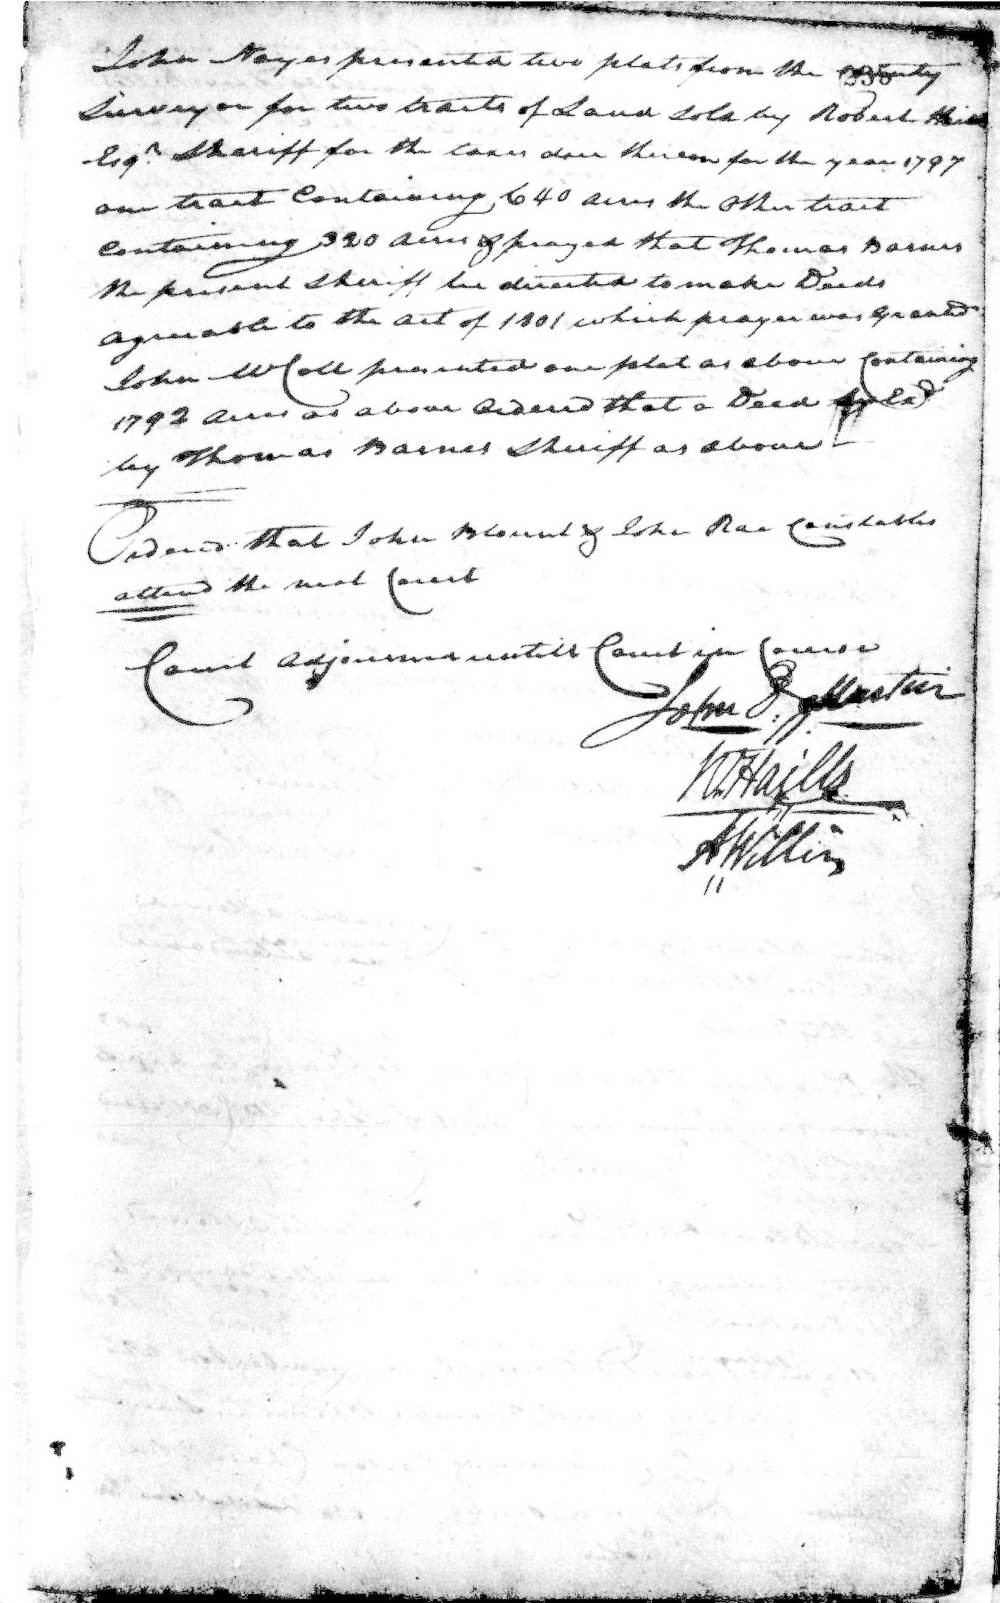 John Noyes presented two plats from the County
338
Surveyor for two tracts of Land sold by Robert
Esqr. Sheriff for the taxes due thereon for the year 1797
one tract Containing 640 acres the other tract
Containing 320 acres & prayed that Thomas Barnes
the present Sheriff be directed to make Deeds
agreeable to the act of 1801 which prayer was granted
John McColl presented one plat as above Containing
1792 acres as above Ordered that a Deed
by Thomas Barnes Sheriff as above
Ordered that John Blount & John Rae Constables
attend the next Court
Court adjourned untill Court in Course
John
A Willis